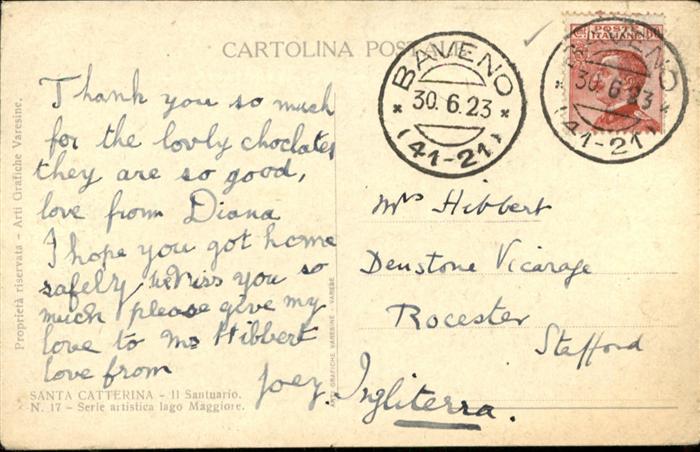 CARTOLINA POSTALE
Thank you so much
for the lovly choclates
they are so good,
love from Diana
I hope you got home
safelly, We Miss you so
much please give my
love to Mr Hibbert
love from
Joey.
BAVENO
30.6.23
(41-21)
POSTE
ITALIANE
BAVENO
30.6.23
(41-21)
Mrs Hibbert
Denstone Vicarage
Rocester
Stafford
Ingliterra.
SANTA CATTERINA - Il Santuario.
N. 17 - Serie artistica lago Maggiore.
Proprietà riservata - Arti Grafiche Varesine.
ARTI GRAFICHE VARESINE - VARESE